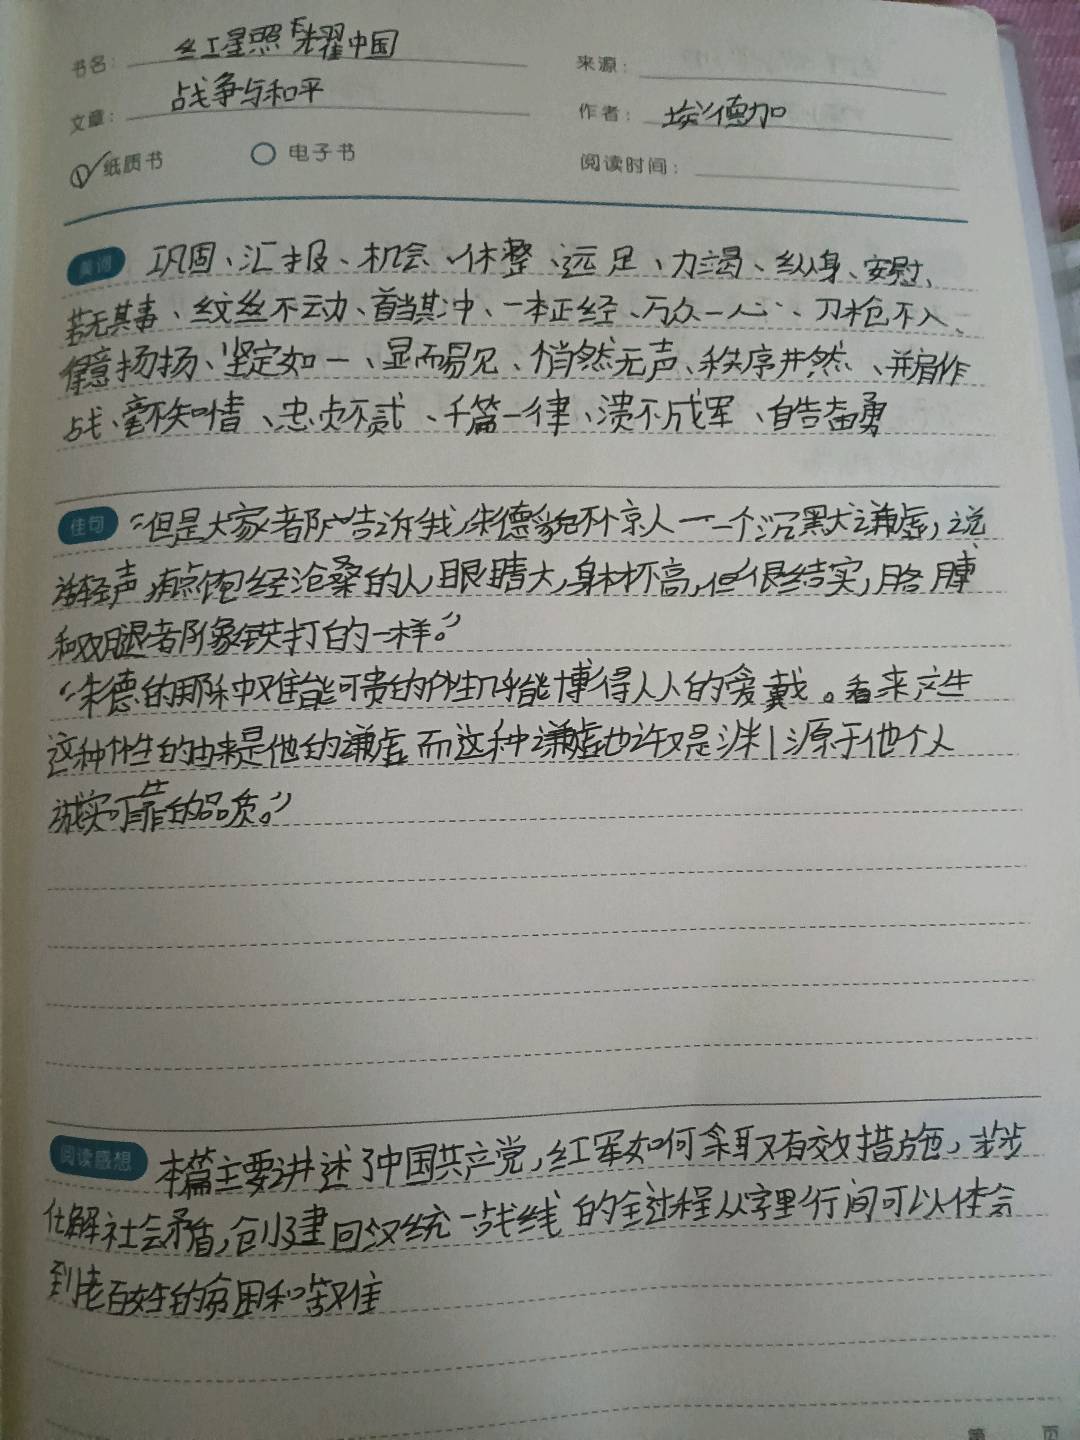 书名: 红星照耀中国
来源:
文章: 战争与和平
作者: 埃德加
纸质书 电子书
阅读时间:
美词 巩固、汇报、机会、休整、远足、力竭、纵身、安慰、
若无其事、纹丝不动、首当其冲、一本正经、万众一心、刀枪不入、
得意扬扬、坚定如一、显而易见、悄然无声、秩序井然、并肩作
战、毫不知情、忠贞不贰、千篇一律、溃不成军、自告奋勇
佳句 “但是大家都广告诉我,朱德貌不惊人一一个沉默谦虚,说
话轻声,有点饱经沧桑的人,眼睛大,身材不高,但很结实,胳膊
和双腿都像铁打的一样。”
“朱德的那种难能可贵的个性几乎能博得人人的爱戴。看来产生
这种个性的由来是他的谦虚而这种谦虚也许又是渊源于他个人
诚实可靠的品质。”
阅读感想 本篇主要讲述了中国共产党,红军如何采取有效措施,逐步
化解社会矛盾,创建回汉统一战线的全过程从字里行间可以体会
到老百姓的贫困和苦难
第 页